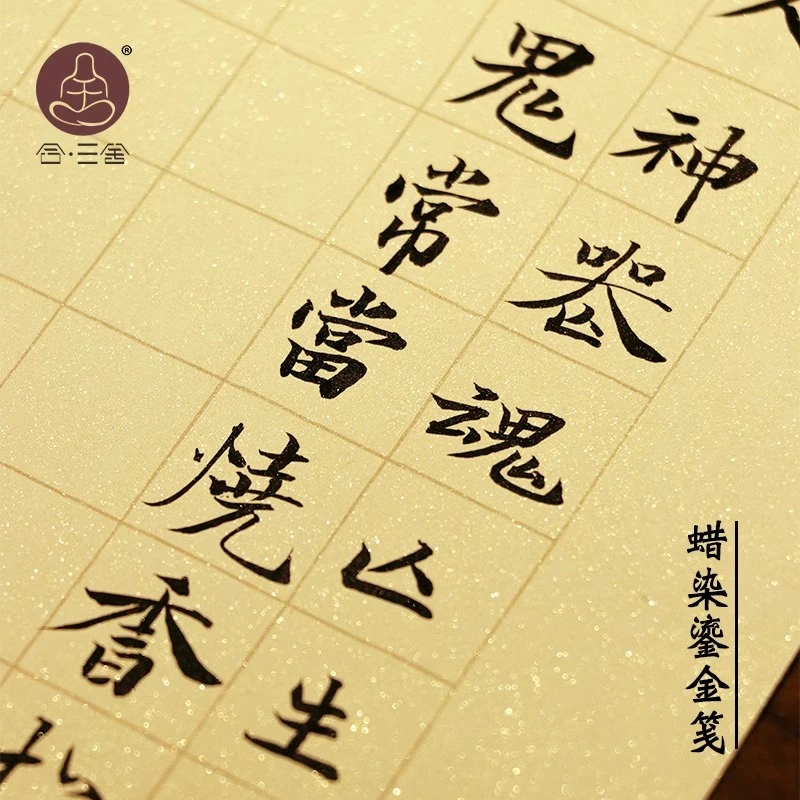 合·三舍
神魂亾生
鬼常當燒香
蜡染鎏金笺